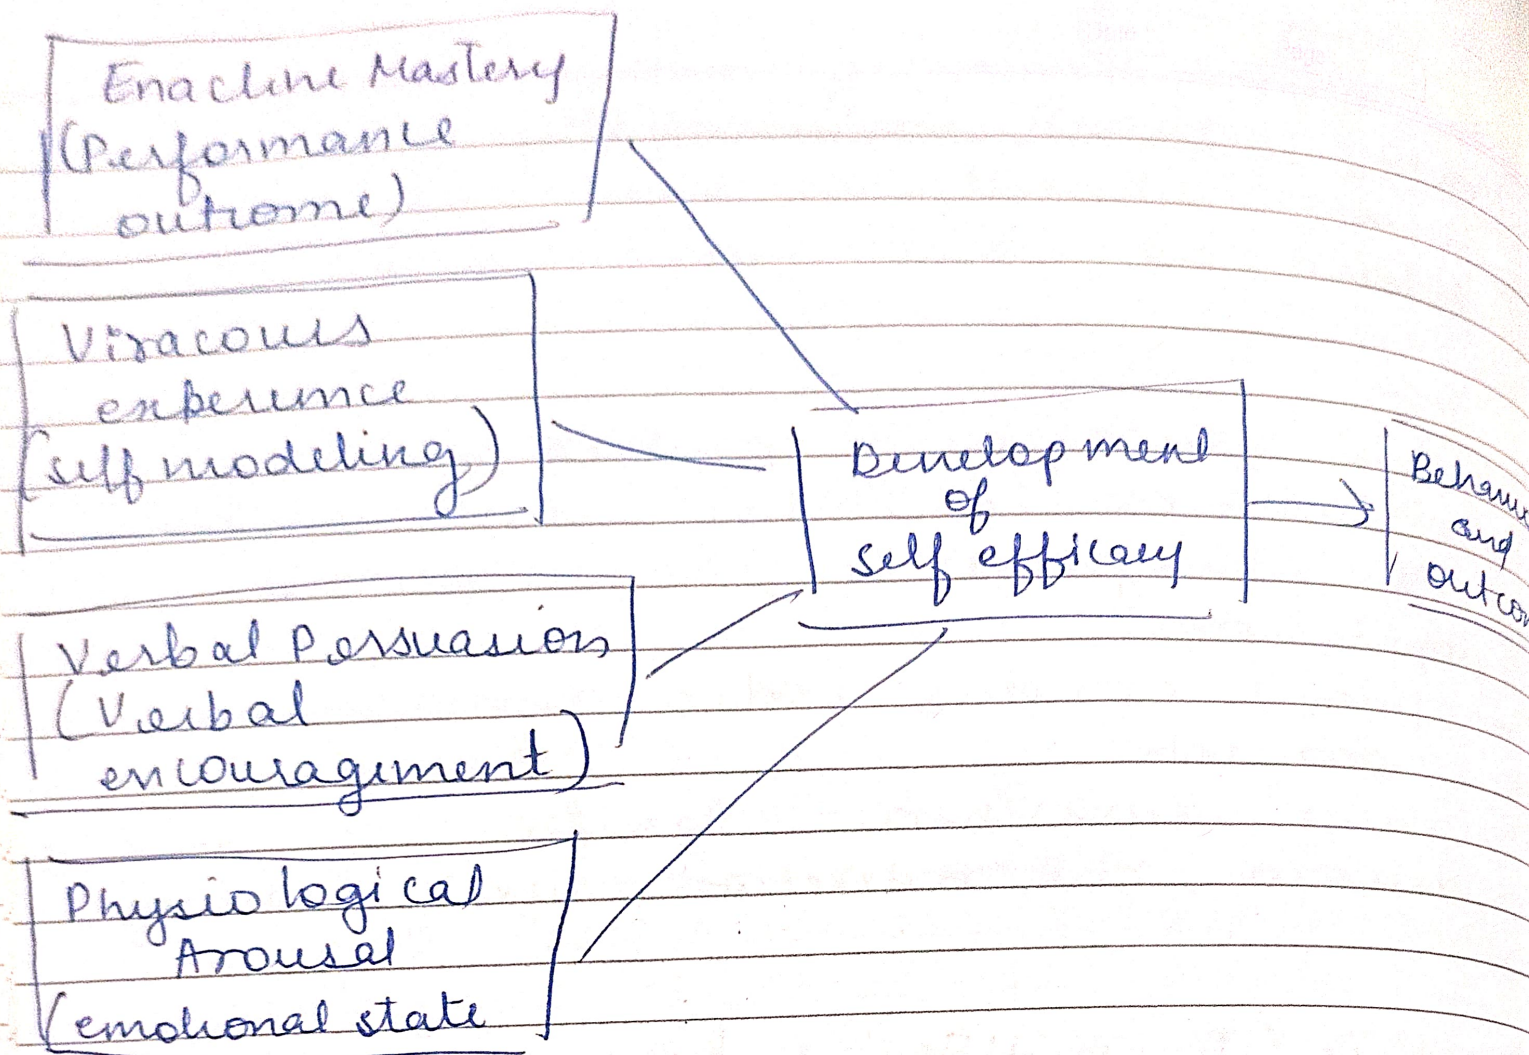 Enactine Mastery
(Performance
outcome)
Viracouis
experience
(self modeling)
Verbal Persuasion
(Verbal
encouragement)
Physiological
Arousal
(emotional state
Development
of
self efficacy
Behaviou
and
outcom